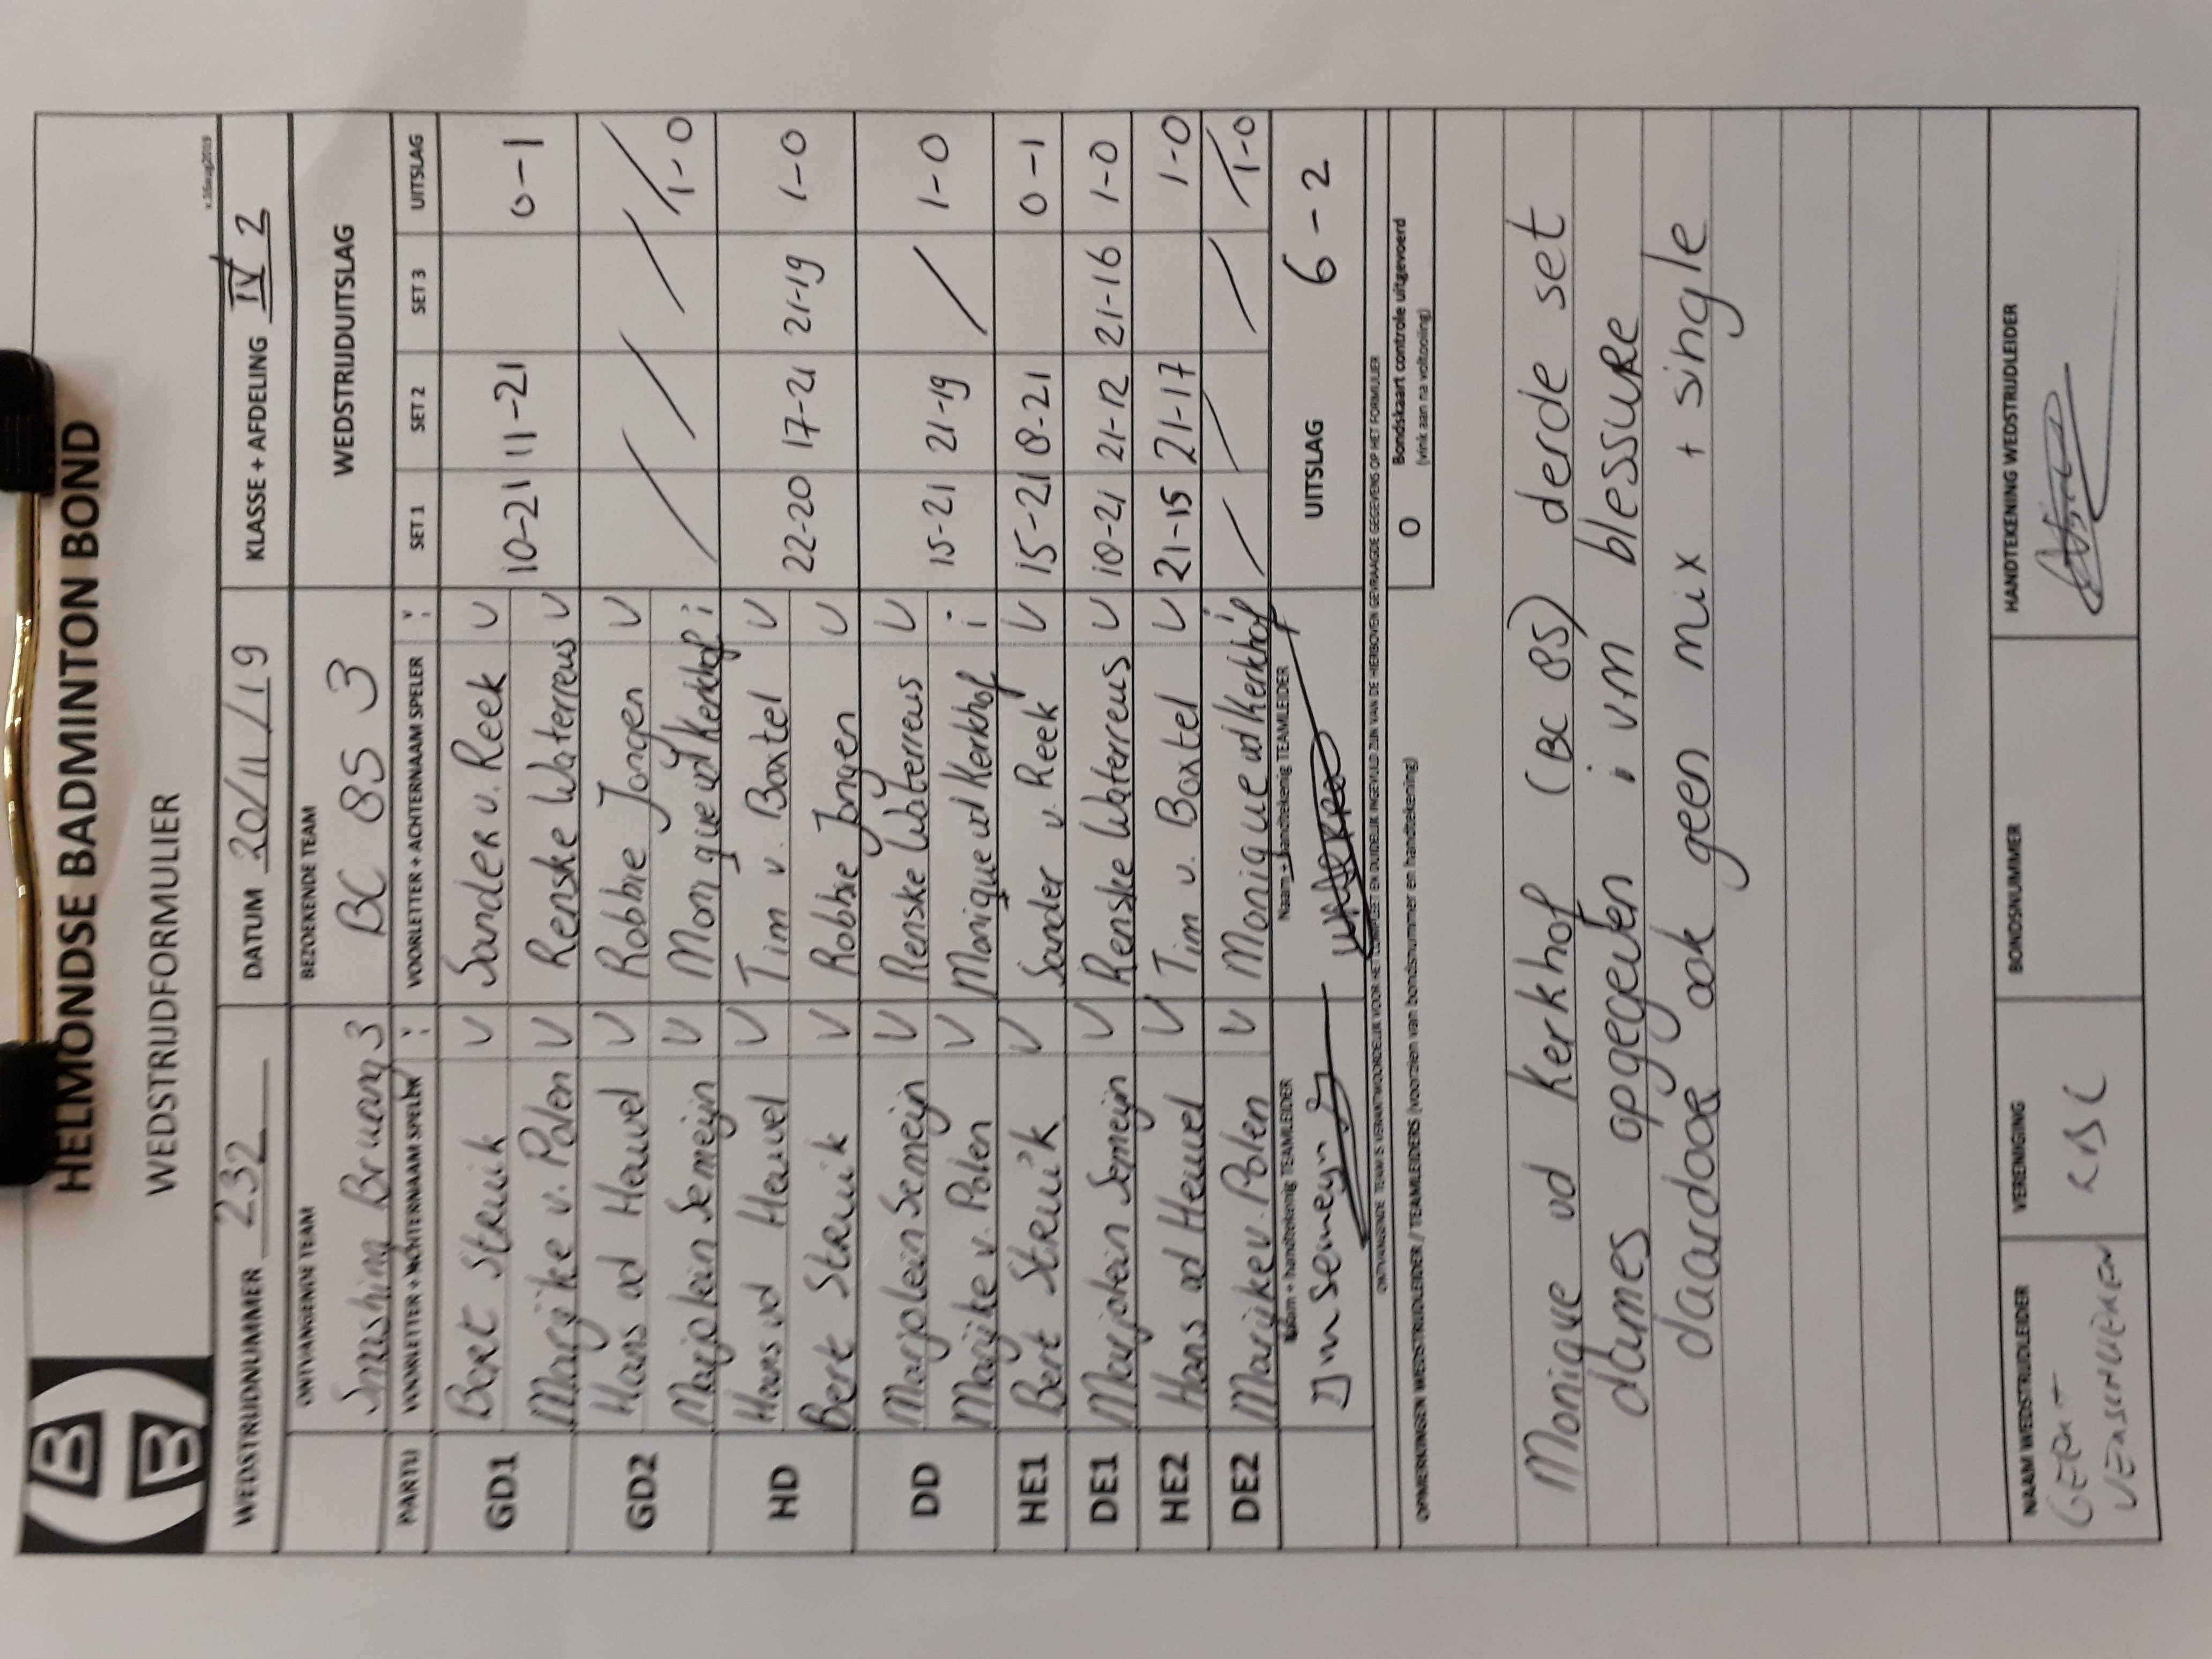 HELMONDSE BADMINTON BOND
HBB
WEDSTRIJDFORMULIER
v.16aug2019
WEDSTRIJDNUMMER 232 DATUM 20/11/19 KLASSE + AFDELING IV 2
ONTVANGENDE TEAM BEZOEKENDE TEAM WEDSTRIJDUITSLAG
Smashing Bruang 3 BC 85 3
PARTIJ VOORLETTER + ACHTERNAAM SPELER VOORLETTER + ACHTERNAAM SPELER SET 1 SET 2 SET 3 UITSLAG
GD1 Bert Struik V Sander v. Reek V 10-21 11-21 0-1
Marijke v. Polen V Renske Waterreus V
GD2 Hans vd Heuvel V Robbie Jongen V / / / /
Marjolein Semeijn V Monique vd Kerkhof i 1-0
HD Hans vd Heuvel V Tim v. Boxtel V 22-20 17-21 21-19 1-0
Bert Struik V Robbie Jongen V
DD Marjolein Semeijn V Renske Waterreus V 15-21 21-19 / 1-0
Marijke v. Polen V Monique vd Kerkhof i
HE1 Bert Struik V Sander v. Reek V 15-21 8-21 0-1
DE1 Marjolein Semeijn V Renske Waterreus V 18-21 21-12 21-16 1-0
HE2 Hans vd Heuvel V Tim v. Boxtel V 21-15 21-17 1-0
DE2 Marijke v. Polen V Monique vd Kerkhof i / / / 1-0
Naam + handtekenig TEAMLEIDER Naam + handtekenig TEAMLEIDER UITSLAG 6-2
Semeijn
ONTVANGENDE TEAM IS VERANTWOORDELIJK VOOR HET COMPLEET EN DUIDELIJK INGEVULD ZIJN VAN DE HIERBOVEN GEVRAAGDE GEGEVENS OP HET FORMULIER
OPMERKINGEN WEDSTRIJDLEIDER / TEAMLEIDERS (voorzien van bondsnummer en handtekening) O Bondskaart controle uitgevoerd
(vink aan na voltooiing)
Monique vd Kerkhof (BC 85) derde set
dames opgegeven i vm blessure
daardoor ook geen mix + single
NAAM WEDSTRIJDLEIDER VERENIGING BONDSNUMMER HANDTEKENING WEDSTRIJDLEIDER
GERT
VERSCHUEREN